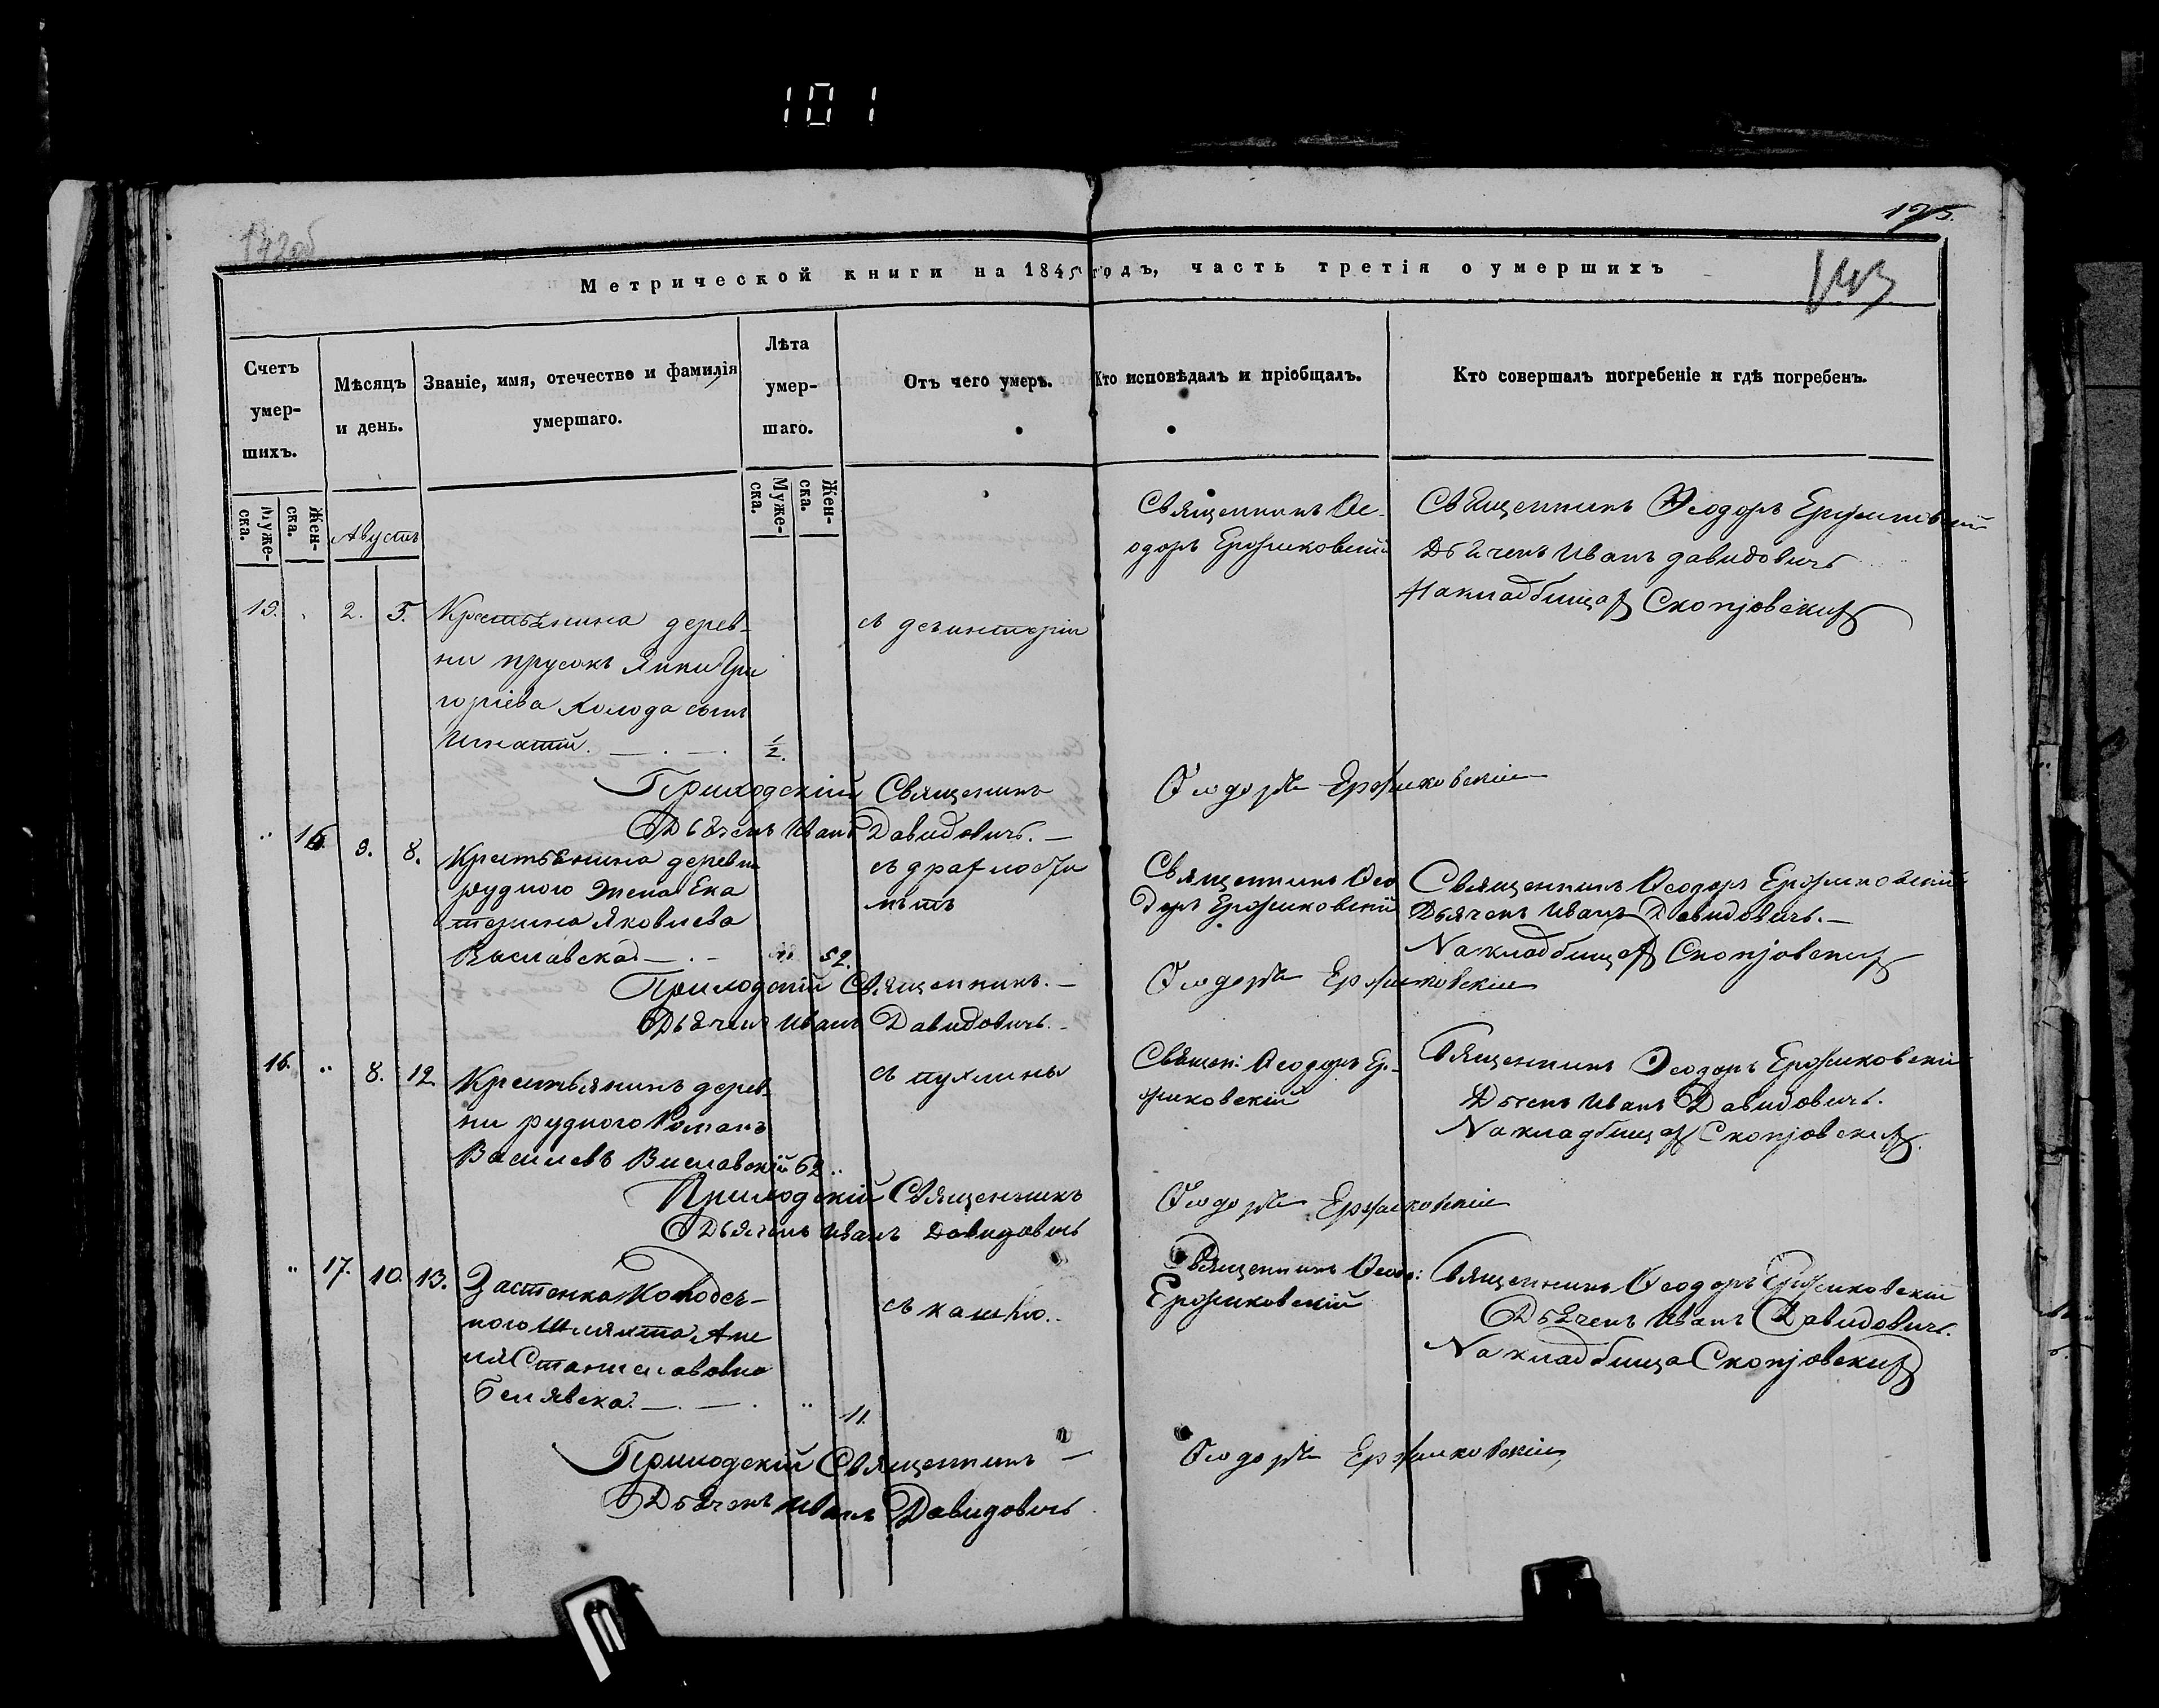 101
175.
142об
143
Метрической книги на 1845 годъ, часть третія о умершихъ
Счетъ умер-шихъ.
Мѣсяцъ и день.
Званіе, имя, отечество и фамилія умершаго.
Лѣта умер-шаго.
Отъ чего умеръ.
Кто исповѣдалъ и пріобщалъ.
Кто совершалъ погребеніе и гдѣ погребенъ.
Муже-ска.
Жен-ска.
Августъ
Муже-ска.
Жен-ска.
15. 2. 5.
Крестьянина дерев-
ни прусокъ Янки Гри
горіева Холода сынъ
Игнатій. 1/2.
съ десинтеріи
Священникъ Ѳе-
одоръ Ерожиковскій
Священникъ Ѳеодоръ
Дьячекъ Иванъ давидовичъ
На кладбищах
Приходскій Священикъ Ѳеодоръ Ержиковскій
Дьячекъ Иванъ Давидовичъ.—
" 16 3. 8.
Крестьянина деревни
рудного Жена Ека
терина Яковлева
52.
съ драхлости
лѣтъ
Священникъ Ѳео
доръ Ерожиковскій
Священникъ Ѳеодоръ Ерожиковскій
Дьячекъ Иванъ Давидовичъ.—
На кладбищах
Приходскій Священникъ.— Ѳеодоръ Ержиковскій
Дьячекъ Иванъ Давидовичъ.—
16. " 8. 12.
Крестьянинъ дерев-
ни рудного Романъ
Василевъ Виславскій 62 "
съ пухлины
Священ: Ѳеодоръ Ер-
ожиковскій
Священникъ Ѳеодоръ Ерожиковскій
Дьчекъ Иванъ Давидовичъ.
На кладбищах
Приходскій Священникъ Ѳеодоръ Ержиковскій
Дьячекъ Иванъ Давидовичъ
" 17. 10. 13.
Застенка Колодез-
ного Шляхта Ане
ля Станиславовна
Белявска. — . — . " 11.
съ кашлю..
Священникъ Ѳеодо:
Ерожиковскій
Священникъ Ѳеодоръ Ерожиковскій
Дьячекъ Иванъ Давидовичъ.
На кладбища
Приходскій Священникъ — Ѳеодоръ Ержиковскій
Дьячекъ Иванъ Давидовичъ